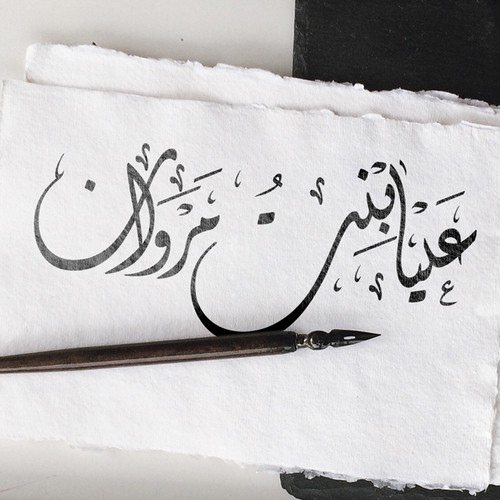 عليا بنت مروان